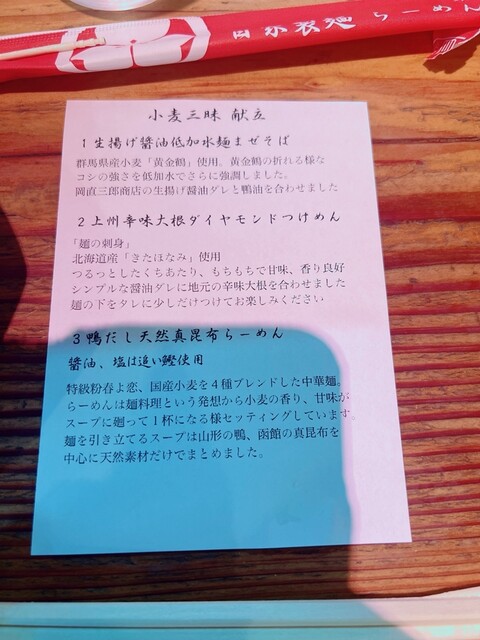 自家製麺 らーめん
小麦三昧 献立
1生揚げ醤油低加水麺まぜそば
群馬県産小麦「黄金鶴」使用。黄金鶴の折れる様な
コシの強さを低加水でさらに強調しました。
岡直三郎商店の生揚げ醤油ダレと鴨油を合わせました
2上州辛味大根ダイヤモンドつけめん
「麺の刺身」
北海道産「きたほなみ」使用
つるっとしたくちあたり、もちもちで甘味、香り良好
シンプルな醤油ダレに地元の辛味大根を合わせました
麺の下をタレに少しだけつけてお楽しみください
3鴨だし天然真昆布らーめん
醤油、塩は追い鰹使用
特級粉春よ恋、国産小麦を4種ブレンドした中華麺。
らーめんは麺料理という発想から小麦の香り、甘味が
スープに廻って1杯になる様セッティングしています。
麺を引き立てるスープは山形の鴨、函館の真昆布を
中心に天然素材だけでまとめました。